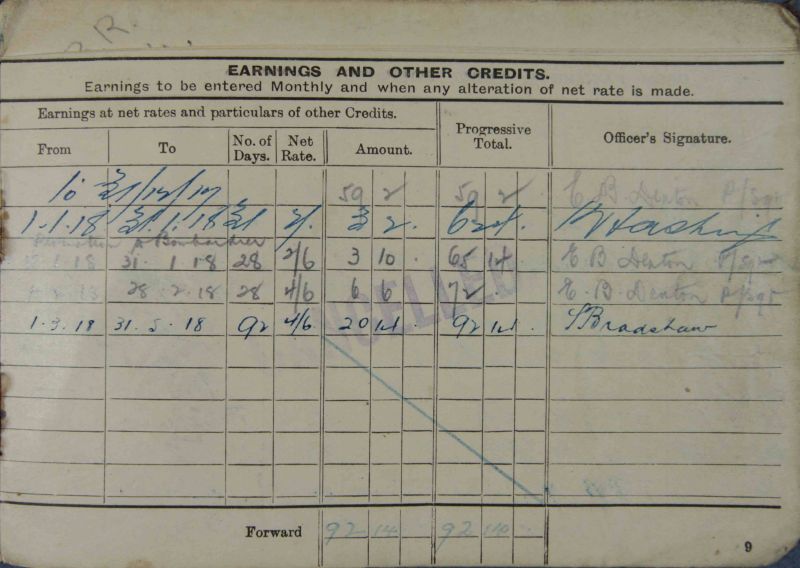 R.
EARNINGS AND OTHER CREDITS.
Earnings to be entered Monthly and when any alteration of net rate is made.
Earnings at net rates and particulars of other Credits.
Progressive Total.
Officer's Signature.
From To No. of Days. Net Rate. Amount.
To 31/12/17 59 2 59 2 E B Denton P/Sgt
1-1-18 31.1.18 31 2/. 3 2 62 4
Promotion to Bombardier
1.18 31. 1.18 28 2/6 3 10 65 14 E. B. Denton P/Sgt
2.18 28.2.18 28 4/6 6 6 72 E. B. Denton P/Sgt
1.3.18 31.5.18 92 4/6 20 14 . 92 14 . Bradshaw
CANCELLED
Forward 92 14 . 92 14 .
9